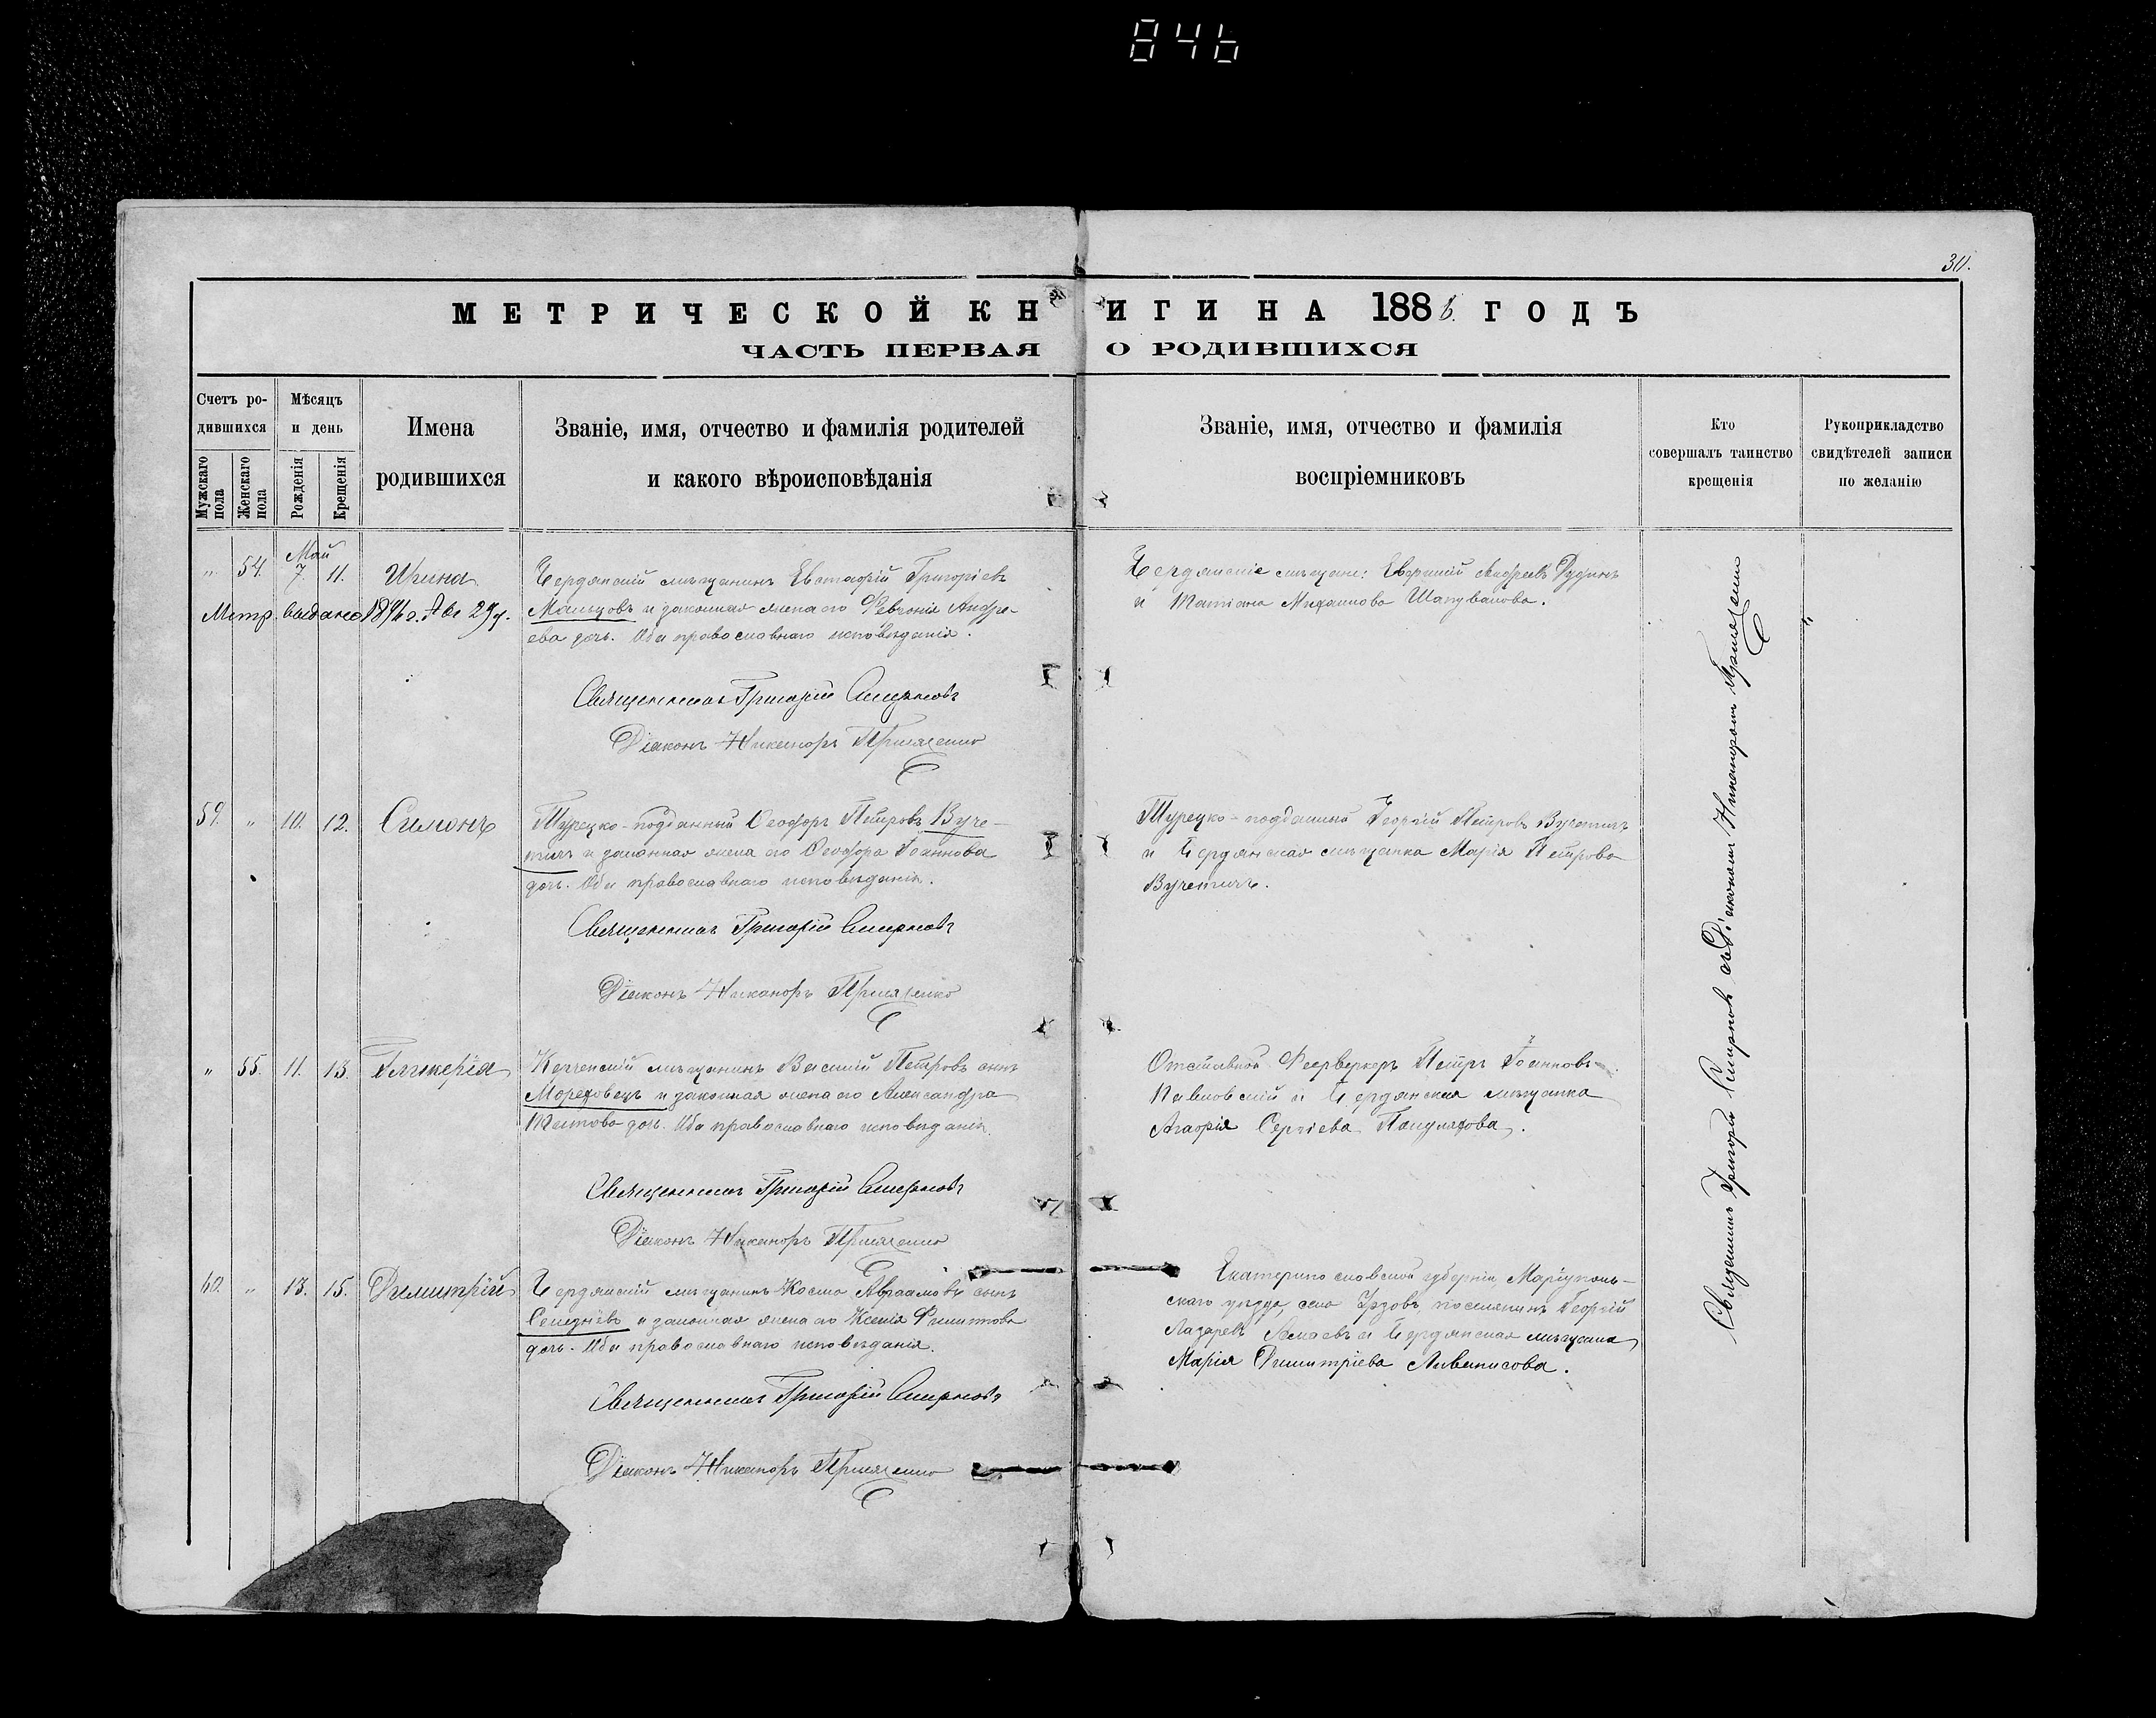 846
30.
МЕТРИЧЕСКОЙ КНИГИ НА 1886. ГОДЪ
ЧАСТЬ ПЕРВАЯ О РОДИВШИХСЯ
Счетъ ро-
дившихся
Мужскаго пола
Женскаго пола
Мѣсяцъ
и день
Рожденія
Крещенія
Имена
родившихся
Званіе, имя, отчество и фамилія родителей
и какого вѣроисповѣданія
Званіе, имя, отчество и фамилія
воспріемниковъ
Кто
совершалъ таинство
крещенія
Рукоприкладство
свидѣтелей записи
по желанію
Май
" 54. 7. 11. Ирина
Метр. выдана
Бердянскій мѣщанинъ Евстафій Григоріевъ
Мальцовъ и законная жена его Февронія Андре-
ева дочь. Оба православнаго исповѣданія.
Священникъ Григорій Смирновъ
Діаконъ Никаноръ
Бердянскіе мѣщане: Евфимій Андреевъ Дудинъ
и Татіана Михаилова Шаповалова.
59. " 10. 12. Симонъ
Турецко-подданный Ѳеодоръ Петровъ Вуче-
тичъ и законная жена его Ѳеодора Іоаннова
дочь. Оба православнаго исповѣданія.
Священникъ Григорій Смирновъ
Діаконъ Никаноръ
Турецко-подданный Георгій Петровъ Вучетичъ
и Бердянская мѣщанка Марія Петрова
Вучетичъ.
" 55. 11. 13. Гликерія
Керченскій мѣщанинъ Василій Петровъ сынъ
Мореховецъ и законная жена его Александра
дочь. Оба православнаго исповѣданія.
Священникъ Григорій Смирновъ
Діаконъ Никаноръ
Отставной Фейерверкеръ Петръ Іоанновъ
и Бердянская мѣщанка
Агафія Сергіева
60. " 13. 15. Димитрій
Бердянскій мѣщанинъ Косма Авраамовъ сынъ
и законная жена его Ксенія Филиппова
дочь. Оба православнаго исповѣданія.
Священникъ Григорій Смирновъ
Діаконъ Никаноръ
Екатеринославской губерніи, Маріуполь-
скаго уѣзда, села Урзовъ, поселянинъ Георгій
Лазаревъ и Бердянская мѣщанка
Марія Димитріева Ливанисова.
Священникъ Григорій Смирновъ съ Діакономъ Никаноромъ